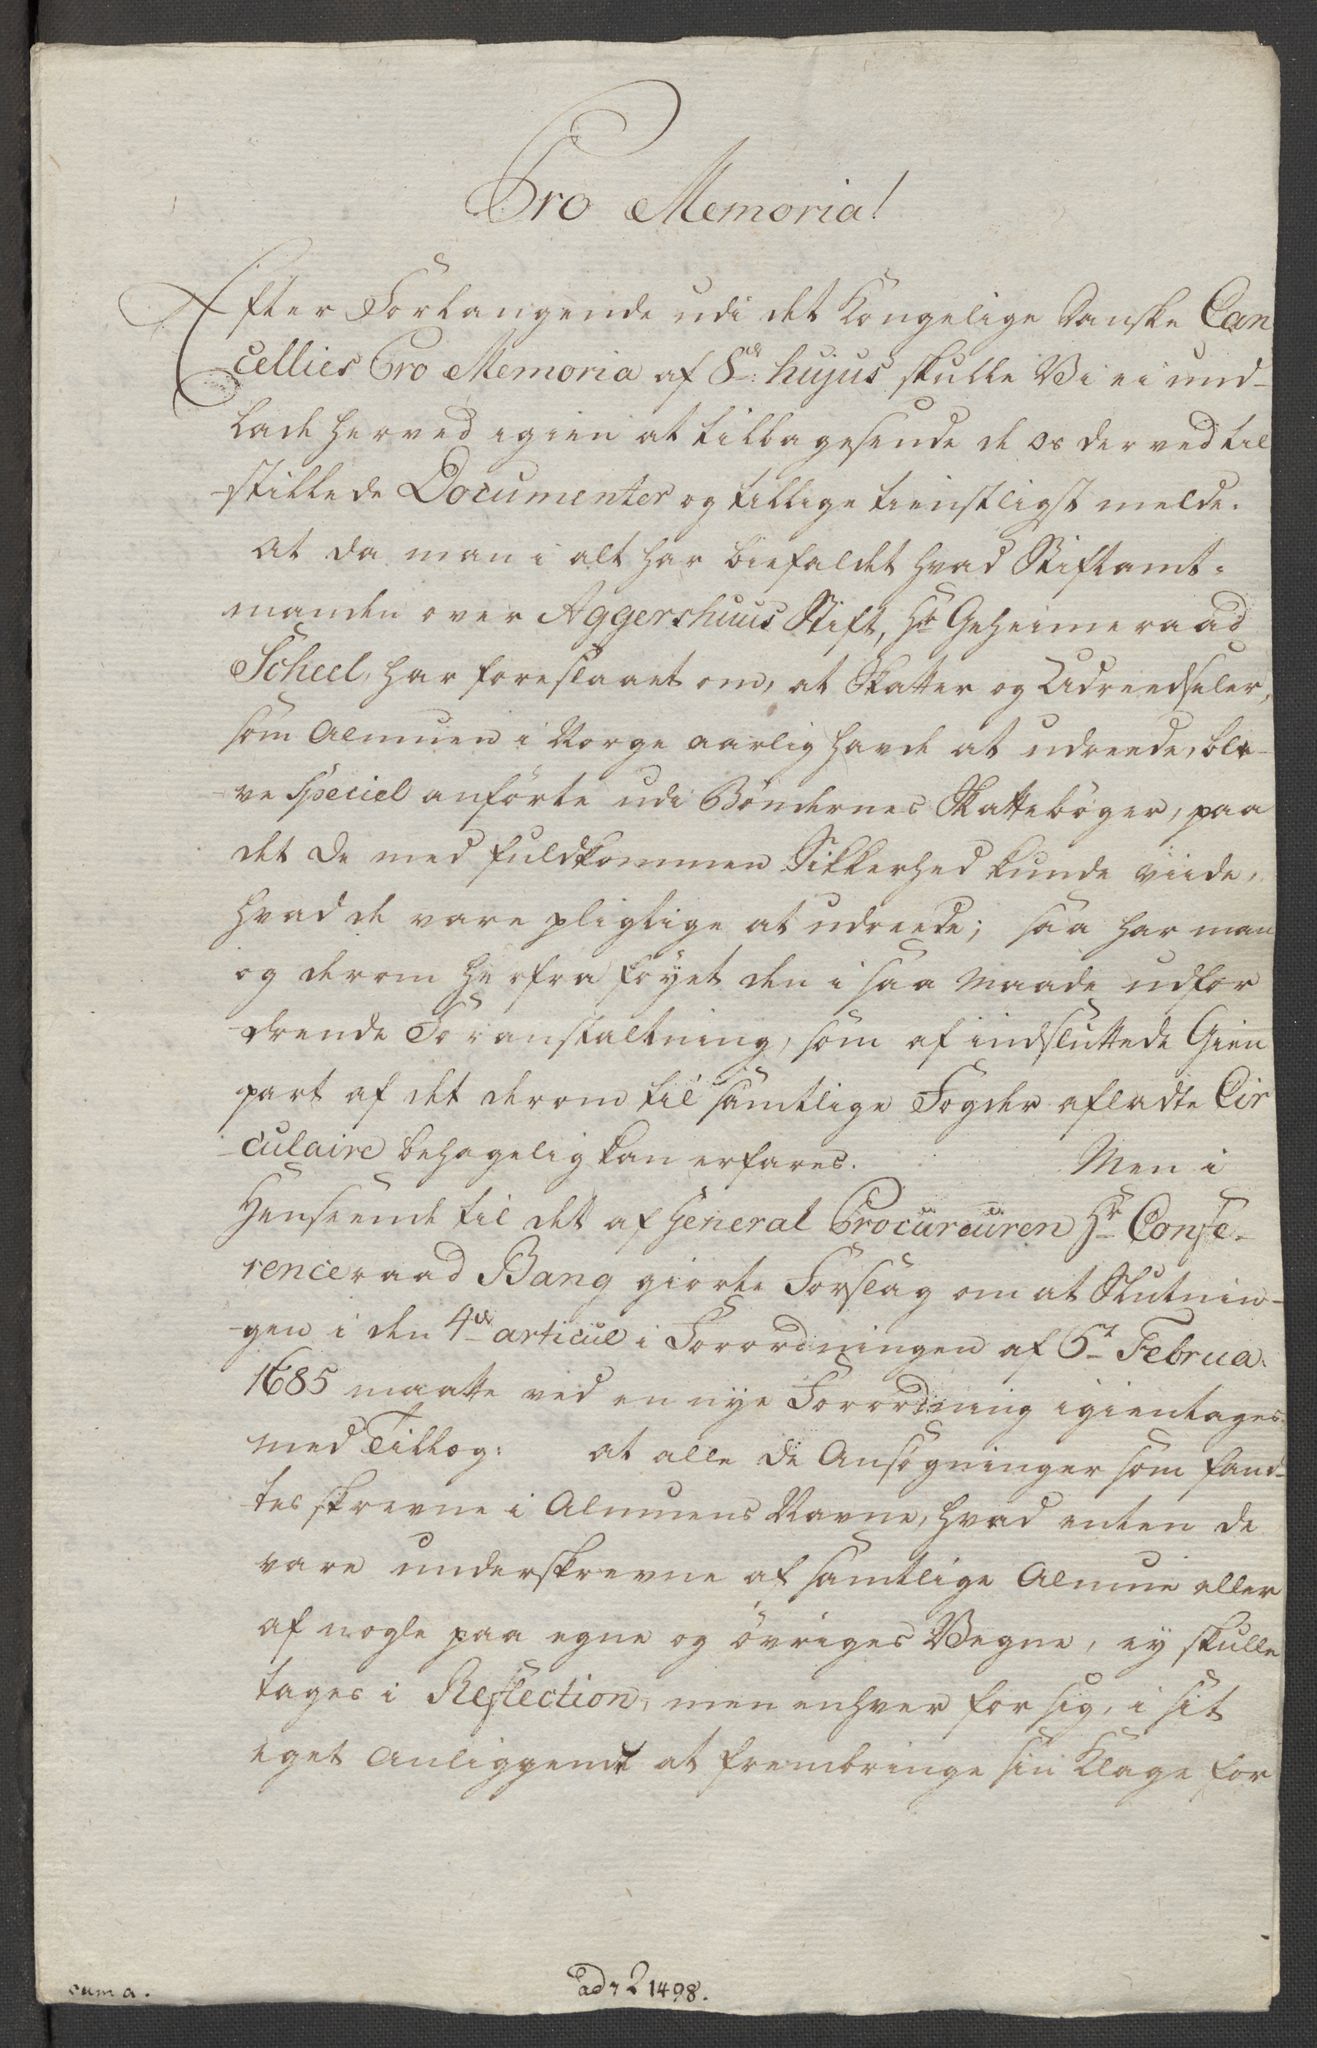 Pro Memoria!
Efter Forlangende udi det Kongelige Danske Can
cellies Pro Memoria af 8de hujus skulle Vi ei und-
lade herved igien at tilbagesende de os derved til
stillede Documenter og tillige tienstligst melde.
At da man i alt har biefaldet hvad Stiftamt-
manden over Aggershuus Stift, Hr Geheimeraad
Scheel, har foreslaaet om, at Skatter og Udreedseler,
som Almuen i Norge aarlig havde at udreede, ble-
ve speciel anførte udi Bøndernes Skattebøger, paa
det De med fuldkommen Sikkerhed kunde viide,
hvad de vare pligtige at udreede; saa har man
og derom herfra føyet den i saa Maade udfor
drende Foranstaltning, som af indsluttede Gien
part af det derom til samtlige Fogder afladte Cir
culaire behagelig kan erfares. Men i
Henseende til det af General Procureuren Hr Confe-
renceraad Bang giorte Forslag om at Slutnin-
gen i den 4de articul i Forordningen af 5t Februa.
1685 maatte ved en nye Forordning igientages
med Tillæg: at alle de Ansøgninger som fand-
tes skrevne i Almuens Navne, hvad enten de
vare underskrevne af samtlige Almue eller
af nogle paa egne og øvriges Vegne, ey skulle
tages i Reflection, men enhver for sig, i sit
eget Anliggende at frembringe sin Klage for
cum a.
ad 1498.